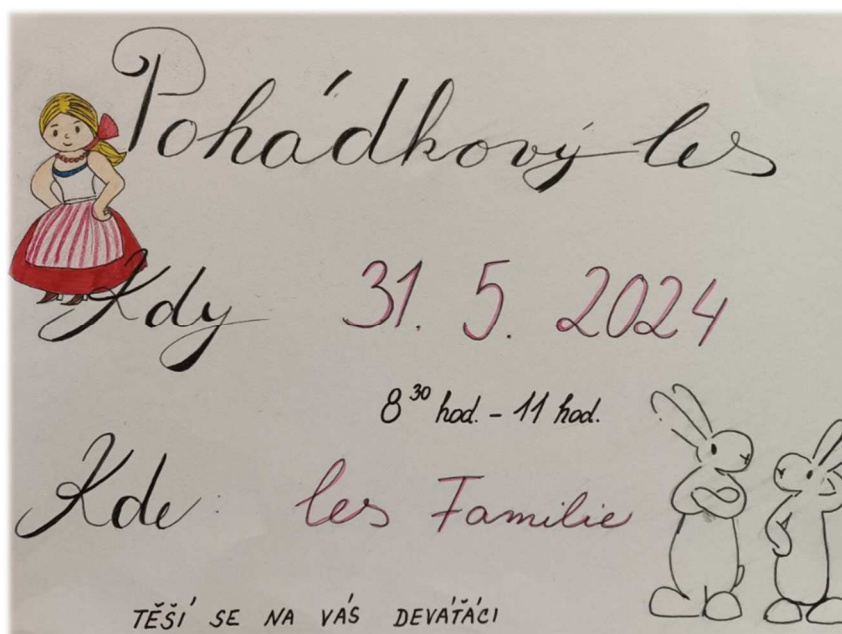 Pohádkový les
Kdy 31. 5. 2024
8³⁰ hod. - 11 hod.
Kde: les Familie
TĚŠÍ SE NA VÁS DEVÁŤÁCI